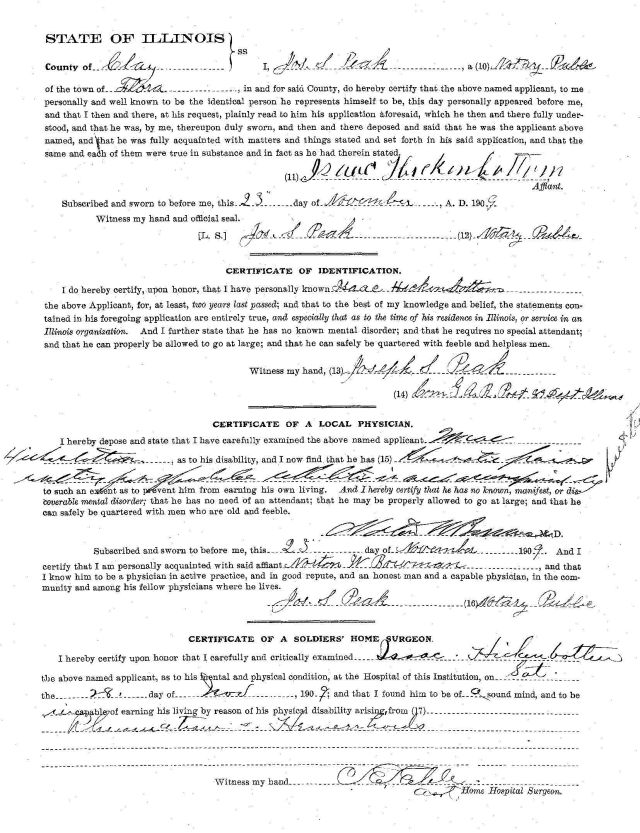 STATE OF ILLINOIS } ss
County of Clay I, Jos. S Peak, a (10) Notary Public
of the town of Flora, in and for said County, do hereby certify that the above named applicant, to me
personally and well known to be the identical person he represents himself to be, this day personally appeared before me,
and that I then and there, at his request, plainly read to him his application aforesaid, which he then and there fully under-
stood, and that he was, by me, thereupon duly sworn, and then and there deposed and said that he was the applicant above
named, and that he was fully acquainted with matters and things stated and set forth in his said application, and that the
same and each of them were true in substance and in fact as he had therein stated.
(11) Isaac Hickenbottom
Affiant.
Subscribed and sworn to before me, this 23 day of November, A. D. 1909.
Witness my hand and official seal.
[L. S.] Jos. S Peak (12) Notary Public
CERTIFICATE OF IDENTIFICATION.
I do hereby certify, upon honor, that I have personally known Isaac Hickenbottom
the above Applicant, for, at least, two years last passed; and that to the best of my knowledge and belief, the statements con-
tained in his foregoing application are entirely true, and especially that as to the time of his residence in Illinois, or service in an
Illinois organization. And I further state that he has no known mental disorder; and that he requires no special attendant;
and that he can properly be allowed to go at large; and that he can safely be quartered with feeble and helpless men.
Witness my hand, (13) Joseph S. Peak
(14) Com G. A. R. Post Dept Illinois
CERTIFICATE OF A LOCAL PHYSICIAN.
I hereby depose and state that I have carefully examined the above named applicant Isaac
Hickenbottom, as to his disability, and I now find that he has (15) Rheumatic pains
to such an extent as to prevent him from earning his own living. And I hereby certify that he has no known, manifest, or dis-
coverable mental disorder; that he has no need of an attendant; that he may be properly allowed to go at large; and that he
can safely be quartered with men who are old and feeble.
Norton W Bowman M. D.
Subscribed and sworn to before me, this 23 day of November 1909. And I
certify that I am personally acquainted with said affiant Norton W. Bowman, and that
I know him to be a physician in active practice, and in good repute, and an honest man and a capable physician, in the com-
munity and among his fellow physicians where he lives.
Jos. S Peak (16) Notary Public
CERTIFICATE OF A SOLDIERS' HOME SURGEON.
I hereby certify upon honor that I carefully and critically examined Isaac Hickenbottom
the above named applicant, as to his mental and physical condition, at the Hospital of this Institution, on Sat.
the 28. day of Nov, 1909; and that I found him to be of a sound mind, and to be
in capable of earning his living by reason of his physical disability arising, from (17)
Rheumatism & Hemorrhoids
Witness my hand
Home Hospital Surgeon.